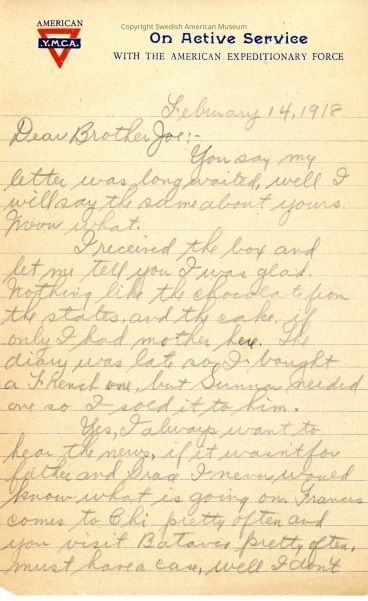 Copyright Swedish American Museum
AMERICAN
Y.M.C.A.
On Active Service
WITH THE AMERICAN EXPEDITIONARY FORCE
February 14, 1918
Dear Brother Joe:-
You say my
letter was long waited, well I
will say the same about yours.
what.
I received the box and
let me tell you I was glad.
Nothing like the chocolate from
the states, and the cake, if
only I had mother here. The
diary was late so I bought
a French one, but Sunna needed
one so I sold it to him.
Yes, I always want to
hear the news, if it wasn't for
father and I never would
know what is going on. Frances
comes to Chi pretty often and
you visit Batavia pretty often,
must have a case, well I don't